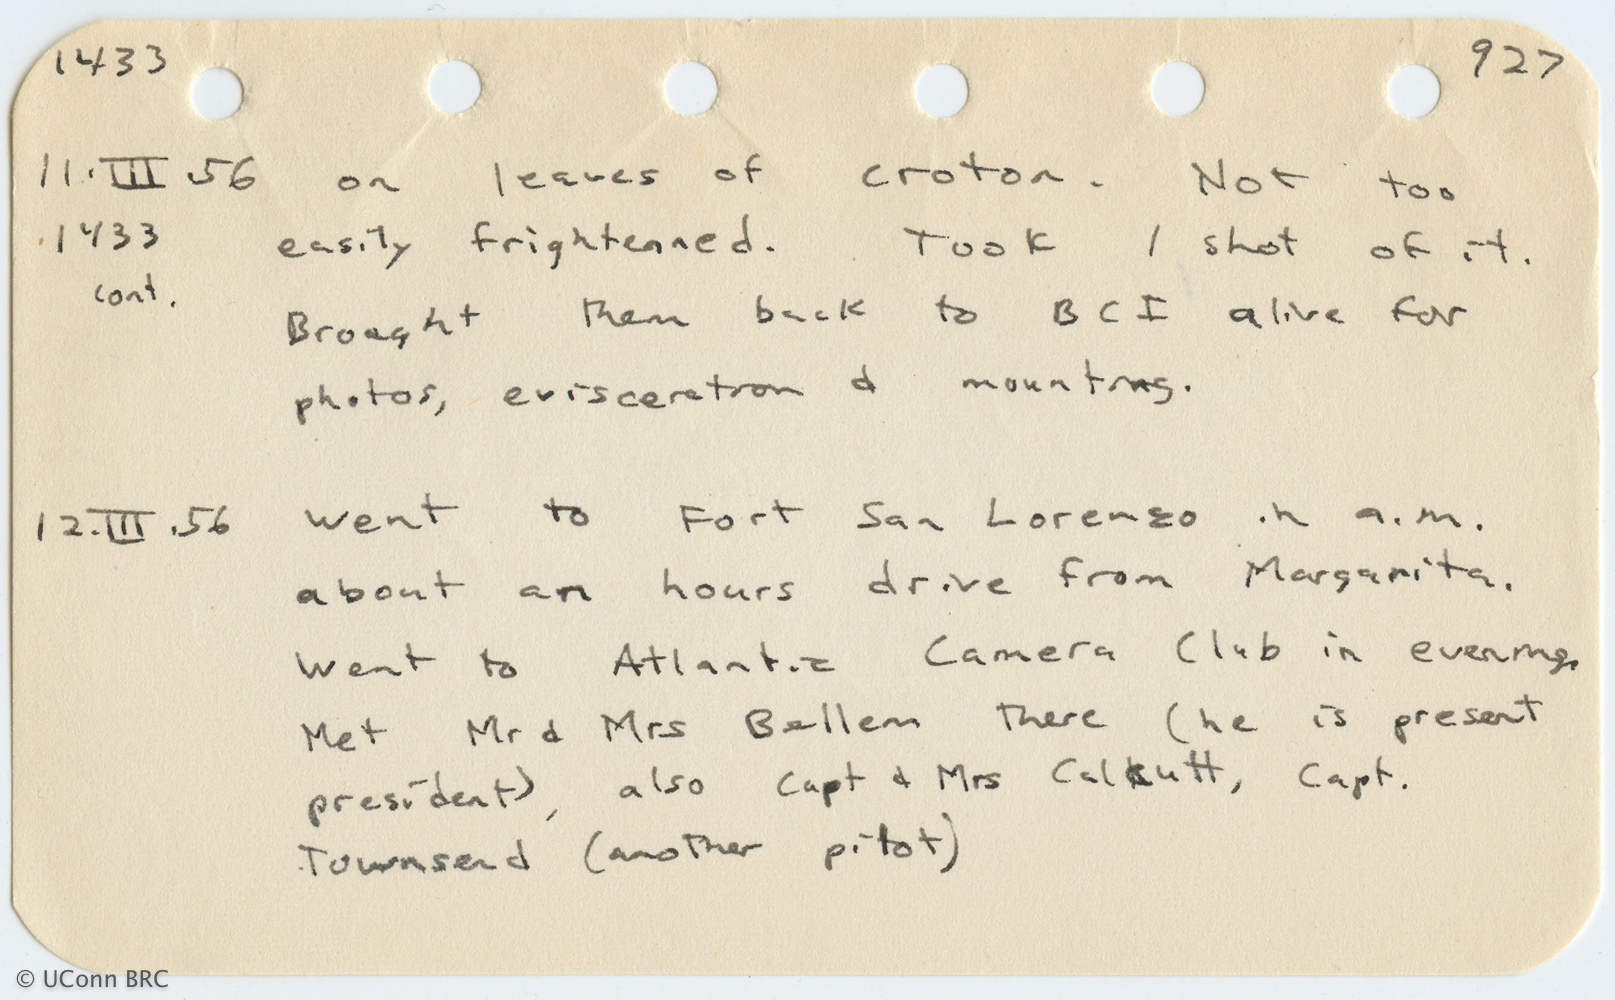 1433 927
11.III.56 on leaves of croton. Not too
1433 easily frightenned. Took 1 shot of it.
cont.
Brought them back to BCI alive for
photos, evisceration & mounting.
12.III.56 Went to Fort San Lorenzo in a.m.
about an hours drive from Margarita.
Went to Atlantic Camera Club in evening.
Met Mr & Mrs Bellem there (he is present
president), also Capt & Mrs Calkutt, Capt.
Townsend (another pilot)
© UConn BRC